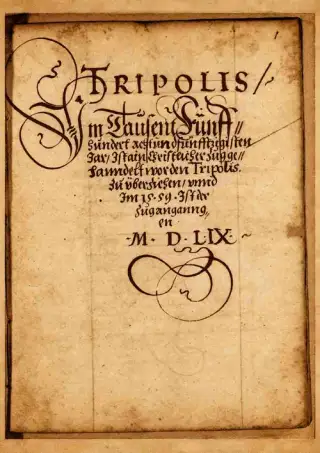 TRIPOLIS/
Im Tausent Fünff//
hundert achtundfünfftzigisten
Jar/ Ist ain Christlicher zug ge/
samdelt worden Tripolis.
zu überziehen/ vnnd
Im 15·59· Ist der
zug anganng//
en
·M·D·LIX·